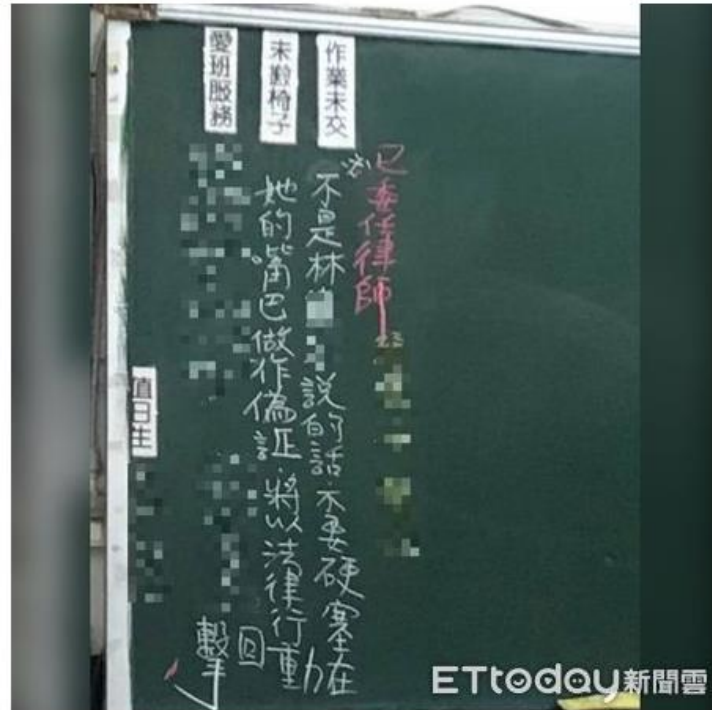 作業未交
未椅子
愛班服務
已委任律師
※不是林說的話.不要硬塞在
她的嘴巴做作偽証.將以法律行動
回擊
值日生
ETtoday新聞雲